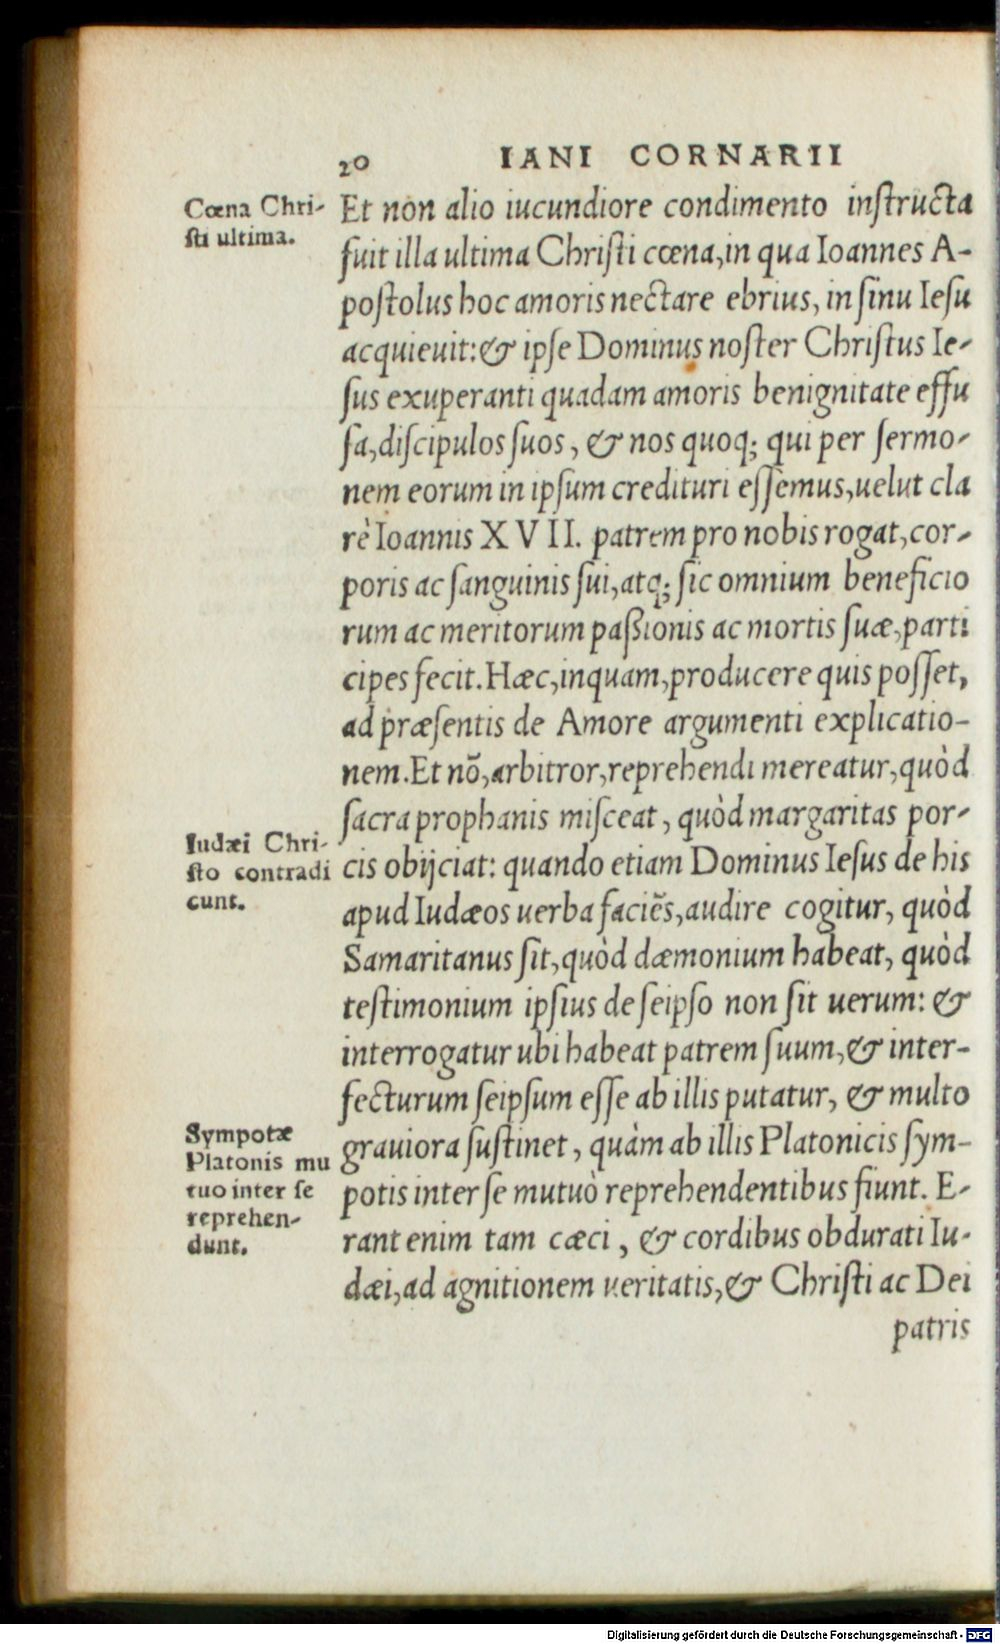 20 IANI CORNARII
Cœna Chri-
ſti ultima.
Et non alio iucundiore condimento inſtructa
fuit illa ultima Chriſti cœna,in qua Ioannes A-
poſtolus hoc amoris nectare ebrius, in ſinu Ieſu
acquieuit:& ipſe Dominus noſter Chriſtus Ie-
ſus exuperanti quadam amoris benignitate effu
ſa,diſcipulos ſuos, & nos quoq; qui per ſermo-
nem eorum in ipſum credituri eſſemus,uelut cla
rè Ioannis XVII. patrem pro nobis rogat,cor-
poris ac ſanguinis ſui,atq; ſic omnium beneficio
rum ac meritorum paßionis ac mortis ſuæ,parti
cipes fecit.Hæc,inquam,producere quis poſſet,
ad præſentis de Amore argumenti explicatio-
nem.Et nõ,arbitror,reprehendi mereatur,quòd
ſacra prophanis miſceat, quòd margaritas por-
Iudæi Chri-
ſto contradi
cunt.
cis obijciat: quando etiam Dominus Ieſus de his
apud Iudæos uerba faciẽs,audire cogitur, quòd
Samaritanus ſit,quòd dæmonium habeat, quòd
teſtimonium ipſius de ſeipſo non ſit uerum: &
interrogatur ubi habeat patrem ſuum,& inter-
fecturum ſeipſum eſſe ab illis putatur, & multo
Sympotæ
Platonis mu
tuo inter ſe
reprehen-
dunt.
grauiora ſuſtinet, quàm ab illis Platonicis ſym-
potis inter ſe mutuò reprehendentibus fiunt. E-
rant enim tam cæci, & cordibus obdurati Iu-
dæi,ad agnitionem ueritatis,& Chriſti ac Dei
patris
Digitalisierung gefördert durch die Deutsche Forschungsgemeinschaft - DFG